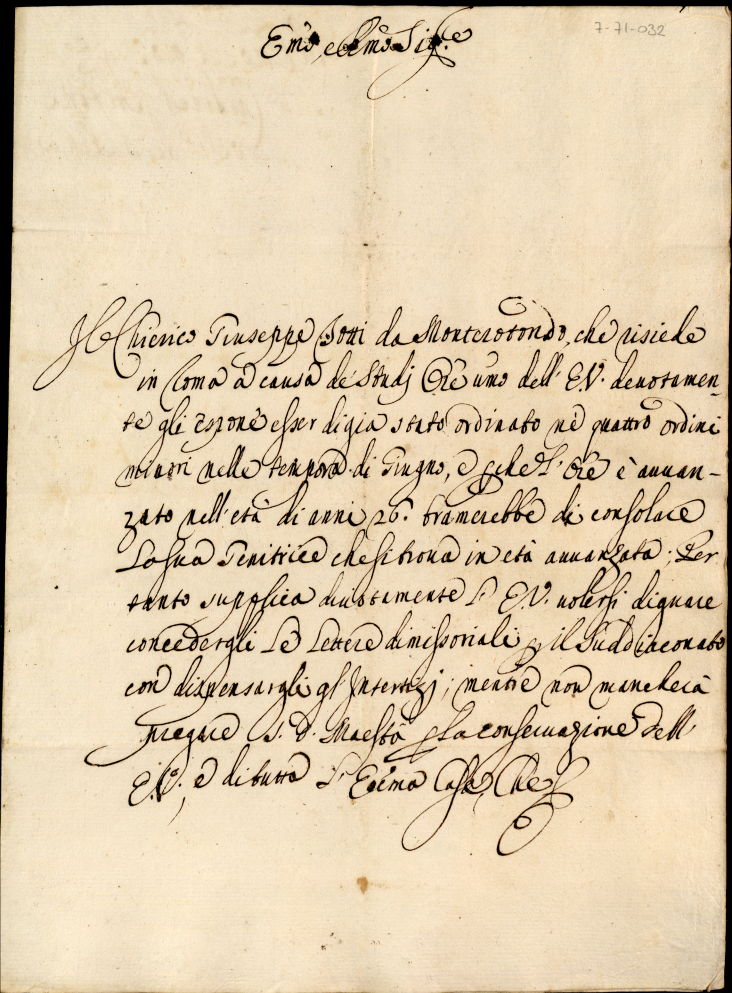 7-71-032
Em̃o, e Rm̃o Sig.re
Il Chierico Giuseppe Botti da Monterotondo, che risiede
in Roma à causa de Studj Ore umo dell' E.V. deuotamen-
te gli espone esser digià stato ordinato nè quattro ordini
minori nelle tempora di Giugno, e p che l' Ore è auuan-
zato nell' età di anni 26. bramerebbe di consolare
la sua Genitrice che si troua in età auuanzata; Per
tanto supplica diuotamente l' E.V. uolersi dignare
concedergli le lettere dimissoriali p il Suddiaconato
con dispensargli gl' Interstizj; mentre non mancherà
pregare S. D. Maestà p la conseruazione dell'
E.V., e di tutta l' Ecc.ma Casa, Che